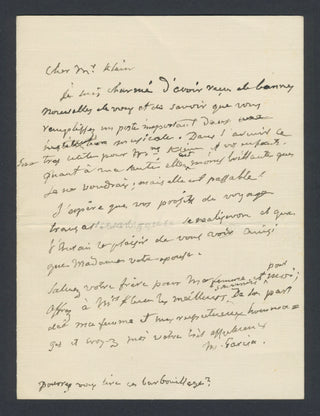 Cher Mr Klein
Je suis charmé d'avoir reçu de bonnes
nouvelles de vous et de savoir que vous
remplissez un poste important dans une
institution musicale. Dans l'avenir ce
sera très utile pour Mme Klein et vos enfants.
Quant à ma santé elle est moins brillante que
je ne voudrais; mais elle est passable!
J'espère que vos projets de voyage
français se réaliseront et que
j'aurais le plaisir de vous voir ainsi
que Madame votre épouse.
Saluez votre frère pour ma femme et pour moi;
Offrez à Mrs Klein les meilleurs de la part
de ma femme et mes respectueux homma=
ges et croyez moi votre très affectionné
M. Garcia.
pourrez vous lire ce barbouillage?